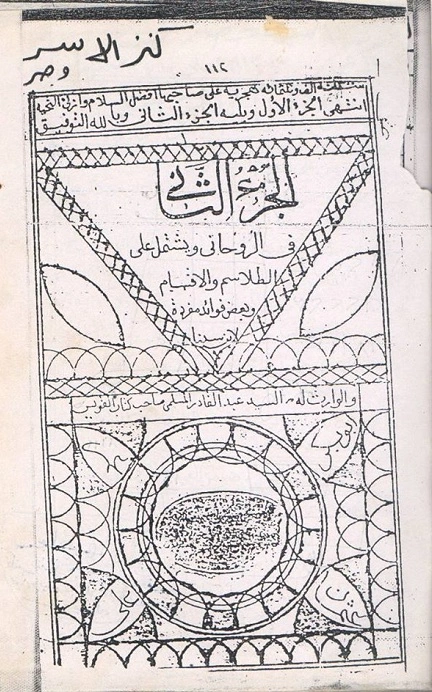 كنز الاسر
وصر
١١٢
سنة الف وثلثمائة هجرية على صاحبها افضل السلام وازكى التحية
انتهى الجزء الأول ويليه الجزء الثانى وبالله التوفيق
الجزء الثانى
فى الروحانى ويشتمل على
الطلاسم والاقسام
وبعض فوائد مفردة
لابن سينا
والوارث له السيد عبد القادر
صاحب
ابو بكر
عمر
عثمان
على